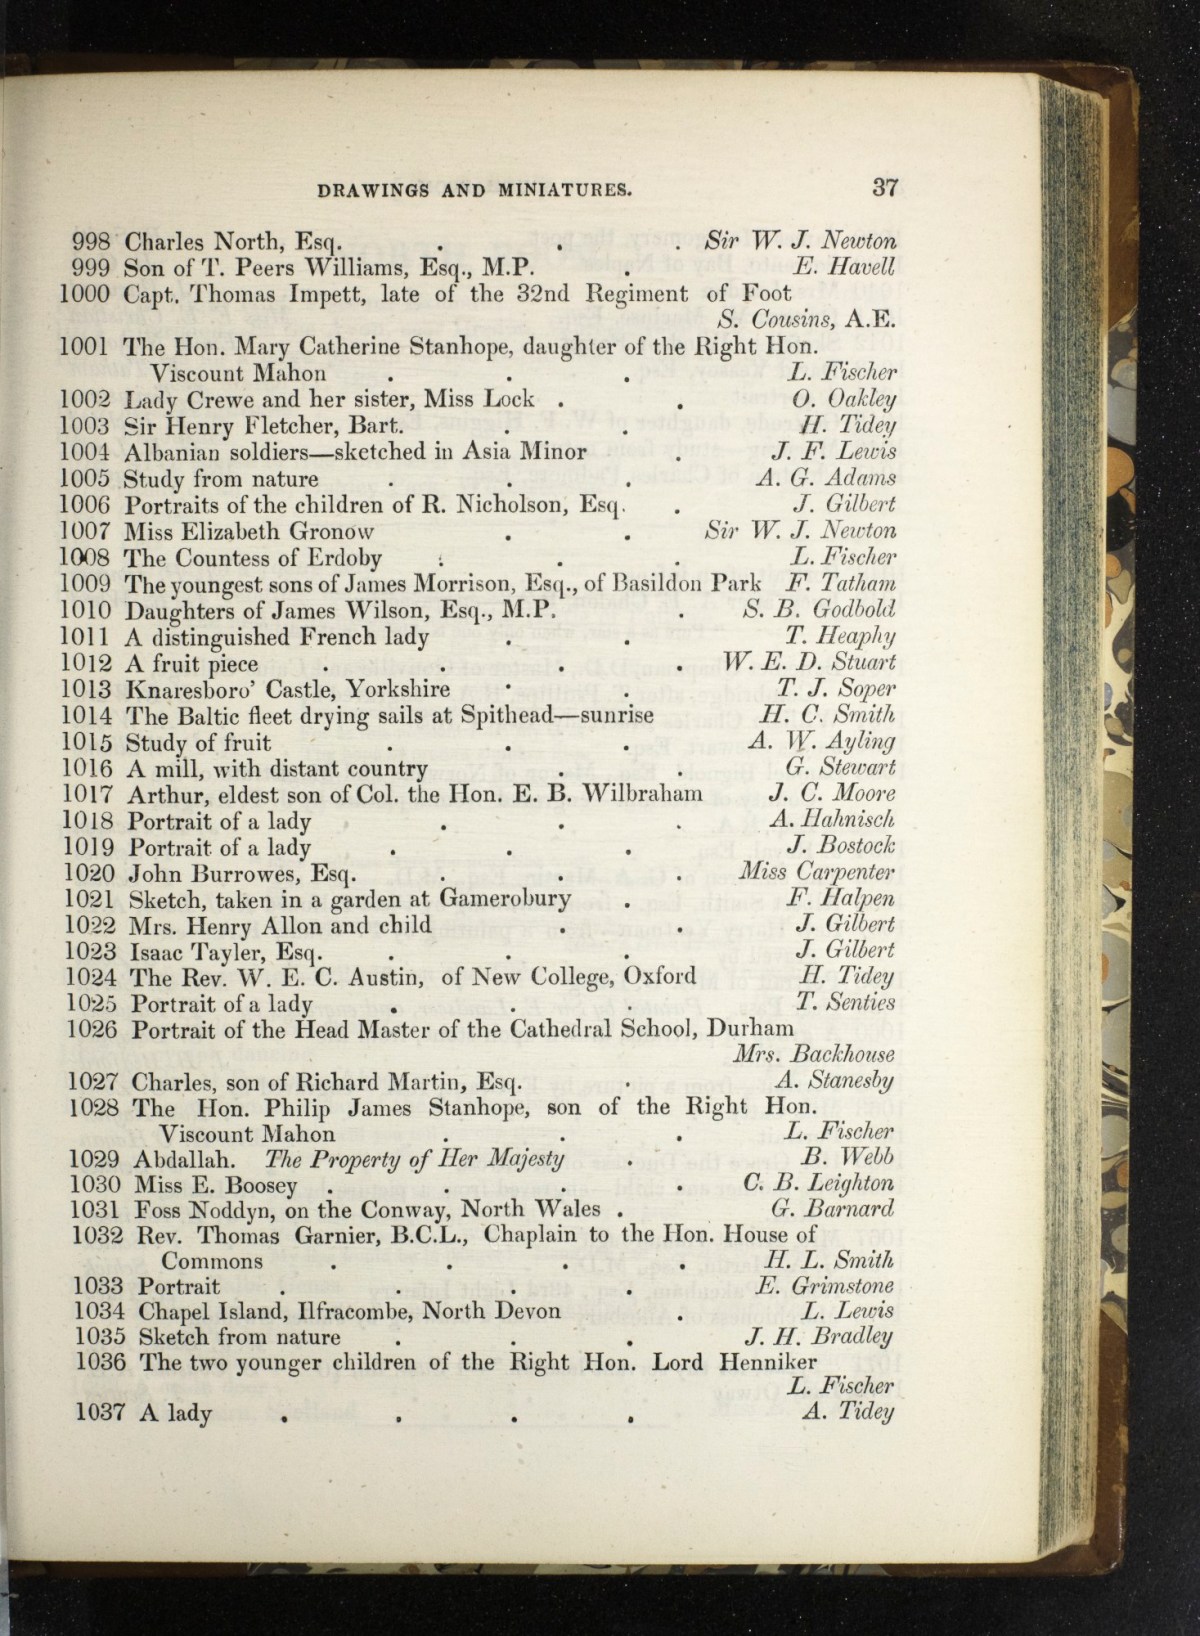 DRAWINGS AND MINIATURES. 37
998 Charles North, Esq. . . . Sir W. J. Newton
999 Son of T. Peers Williams, Esq., M.P. . E. Havell
1000 Capt. Thomas Impett, late of the 32nd Regiment of Foot
S. Cousins, A.E.
1001 The Hon. Mary Catherine Stanhope, daughter of the Right Hon.
Viscount Mahon . . . L. Fischer
1002 Lady Crewe and her sister, Miss Lock . . O. Oakley
1003 Sir Henry Fletcher, Bart. . . H. Tidey
1004 Albanian soldiers—sketched in Asia Minor . J. F. Lewis
1005 Study from nature . . . A. G. Adams
1006 Portraits of the children of R. Nicholson, Esq. . J. Gilbert
1007 Miss Elizabeth Gronow . . Sir W. J. Newton
1008 The Countess of Erdoby . . . L. Fischer
1009 The youngest sons of James Morrison, Esq., of Basildon Park F. Tatham
1010 Daughters of James Wilson, Esq., M.P. . S. B. Godbold
1011 A distinguished French lady . . T. Heaphy
1012 A fruit piece . . . . W. E. D. Stuart
1013 Knaresboro' Castle, Yorkshire . . T. J. Soper
1014 The Baltic fleet drying sails at Spithead—sunrise H. C. Smith
1015 Study of fruit . . . A. W. Ayling
1016 A mill, with distant country . . G. Stewart
1017 Arthur, eldest son of Col. the Hon. E. B. Wilbraham J. C. Moore
1018 Portrait of a lady . . . A. Hahnisch
1019 Portrait of a lady . . . J. Bostock
1020 John Burrowes, Esq. . . . Miss Carpenter
1021 Sketch, taken in a garden at Gamerobury . F. Halpen
1022 Mrs. Henry Allon and child . . J. Gilbert
1023 Isaac Tayler, Esq. . . . J. Gilbert
1024 The Rev. W. E. C. Austin, of New College, Oxford H. Tidey
1025 Portrait of a lady . . . T. Senties
1026 Portrait of the Head Master of the Cathedral School, Durham
Mrs. Backhouse
1027 Charles, son of Richard Martin, Esq. . A. Stanesby
1028 The Hon. Philip James Stanhope, son of the Right Hon.
Viscount Mahon . . . L. Fischer
1029 Abdallah. The Property of Her Majesty . B. Webb
1030 Miss E. Boosey . . . . C. B. Leighton
1031 Foss Noddyn, on the Conway, North Wales . G. Barnard
1032 Rev. Thomas Garnier, B.C.L., Chaplain to the Hon. House of
Commons . . . . H. L. Smith
1033 Portrait . . . . E. Grimstone
1034 Chapel Island, Ilfracombe, North Devon . L. Lewis
1035 Sketch from nature . . . J. H. Bradley
1036 The two younger children of the Right Hon. Lord Henniker
L. Fischer
1037 A lady . . . . A. Tidey